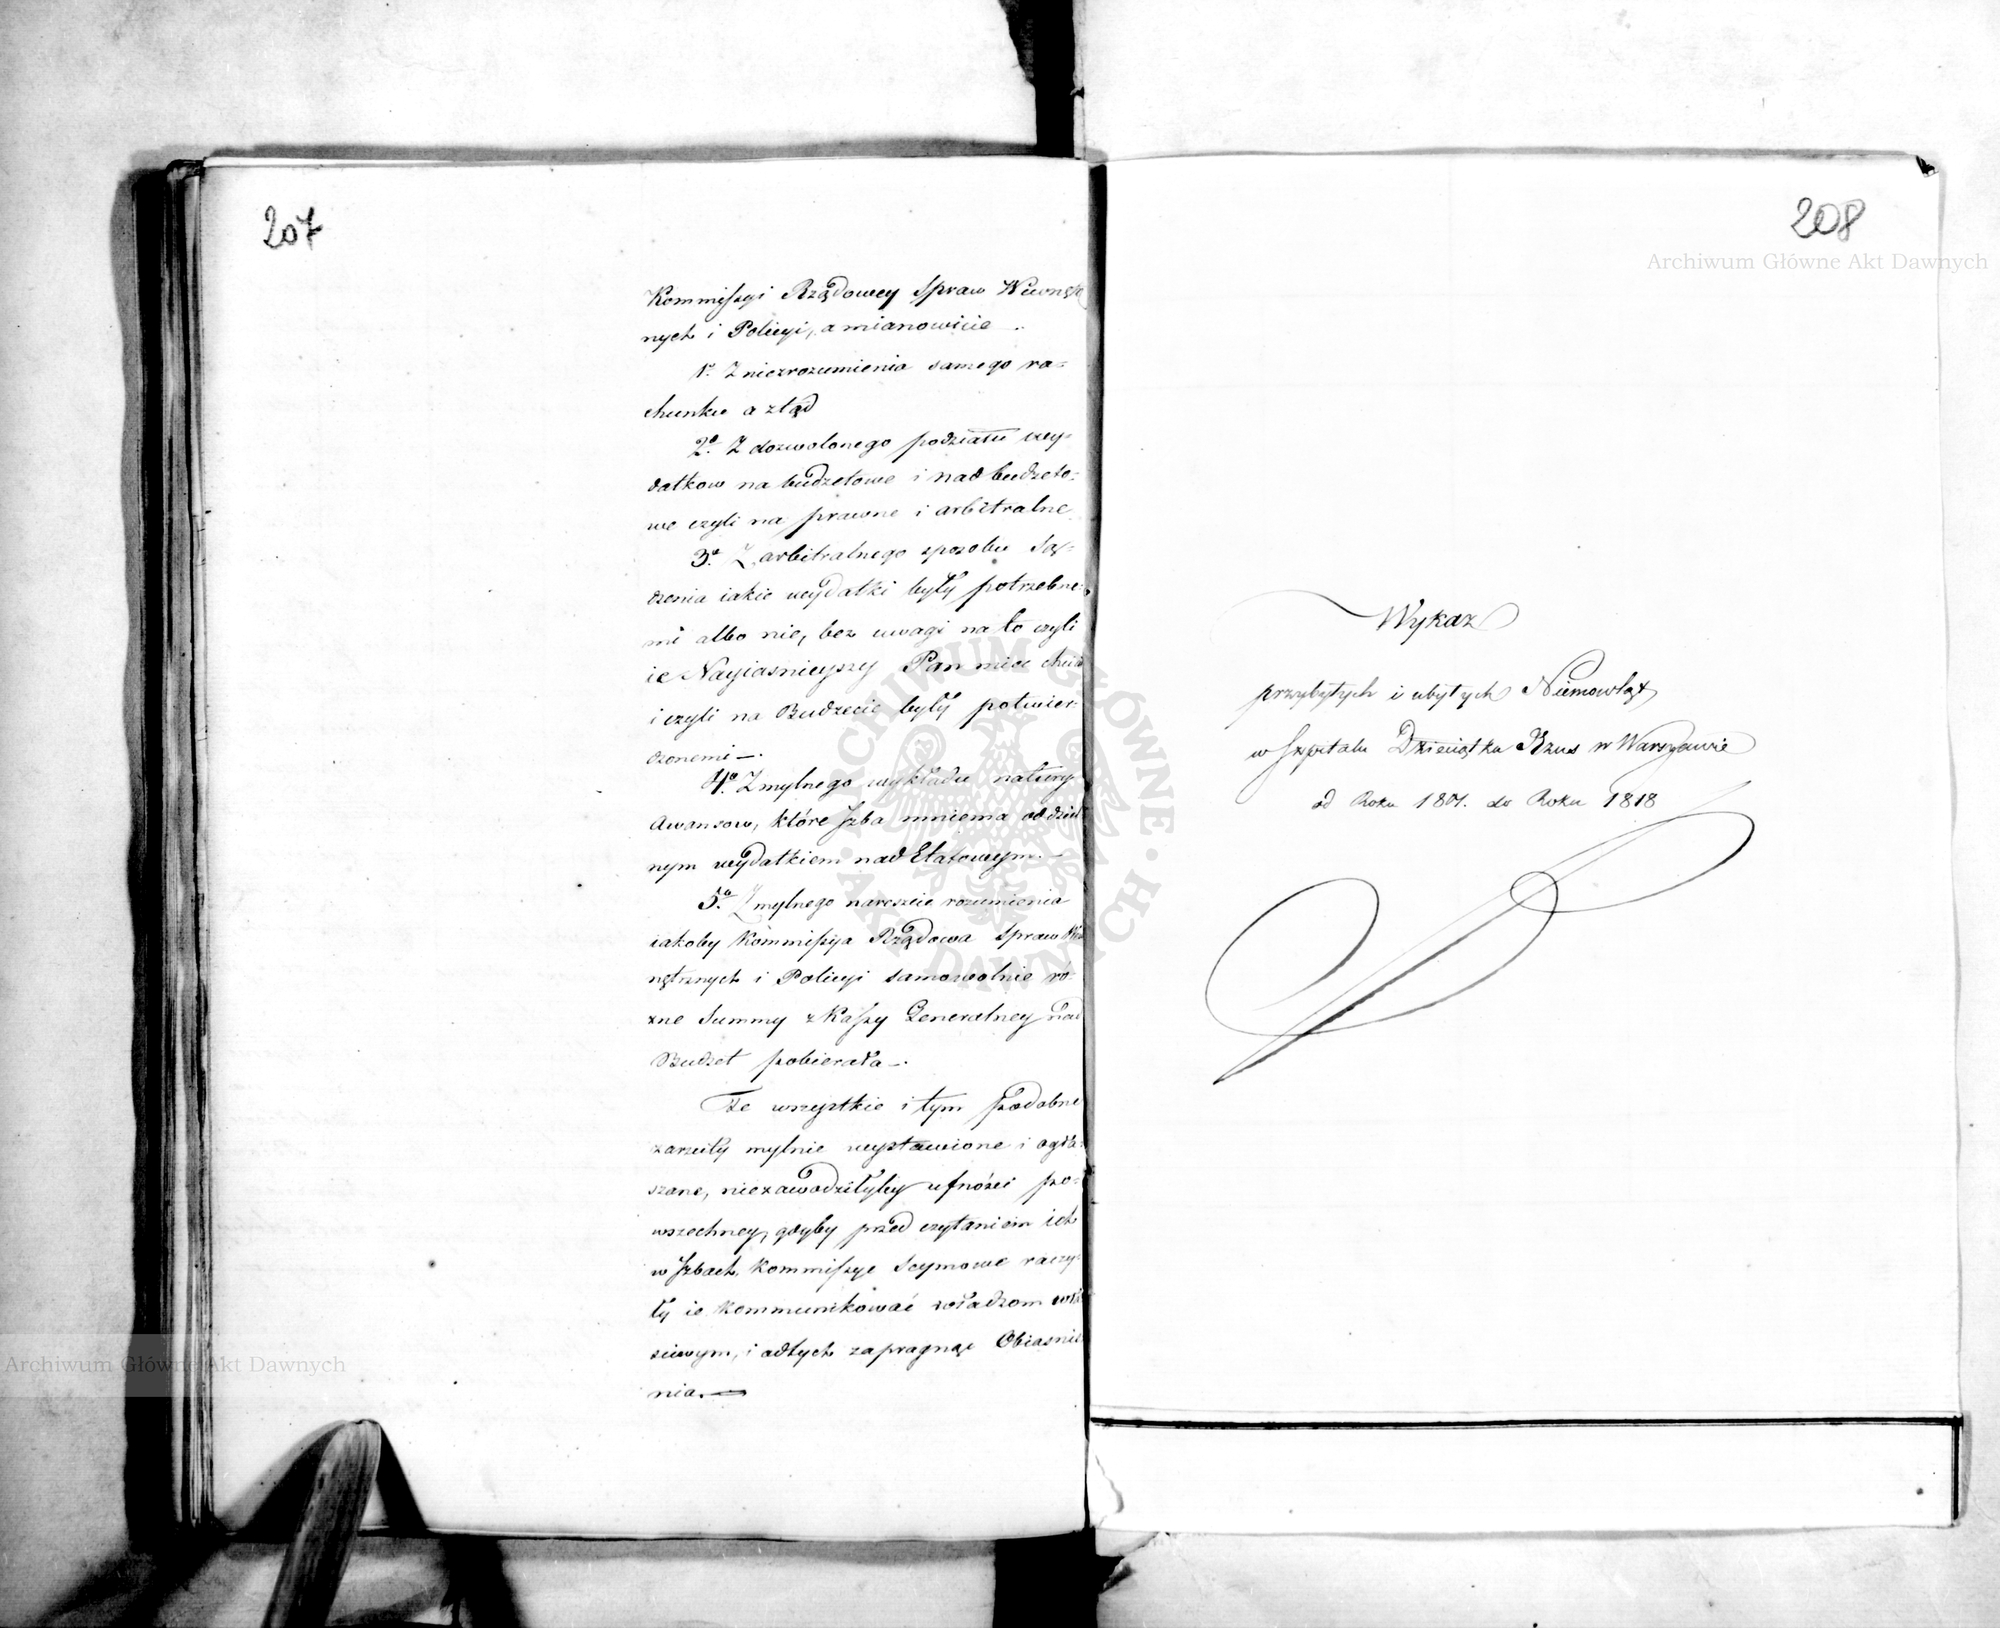 207
Kommissyi Rządowey Spraw Wewnętrz
nych i Policyi, a mianowicie -
1º. Z niezrozumienia samego ra=
chunku a ztąd
2º. Z dozwolonego podziału wy=
datkow na budżetowe i nad budżeto=
we czyli na prawne i arbitralne
3º. Z arbitralnego sposobu Są=
dzenia iakie wydatki były potrzebne=
mi albo nie, bez uwagi na to czyli
ie Nayiasnieyszy Pan mieć chciał
i czyli na Budżecie były potwier=
dzonemi -.
4º. Z mylnego wykładu natury
Awansow, które Izba mniema oddziel
nym wydatkiem nad Etatowym. -
5º. Z mylnego nareszcie rozumienia
iakoby Kommissya Rządowa Spraw We
nętrznych i Policyi samowolnie ró=
żne Summy z Kassy Generalney nad
Budżet pobierała -.
Te wszystkie i tym podobne
zarzuty mylnie wystawione i ogła=
szane, niezawodziłyby ufności po=
wszechney, gdyby przed czytaniem ich
w Izbach, Kommissye Seymowe raczy=
ły ie kommunikować władzom wła
ściwym, i odtych zapragnąć Obiaśnie
nia. -
208
Archiwum Główne Akt Dawnych
Wykaz
przybyłych i ubyłych Niemowląt
w Szpitalu Dzieciątka Jezus w Warszawie
od Roku 1801. do Roku 1818
ARCHIWUM GŁÓWNE
AKT DAWNYCH
Archiwum Główne Akt Dawnych